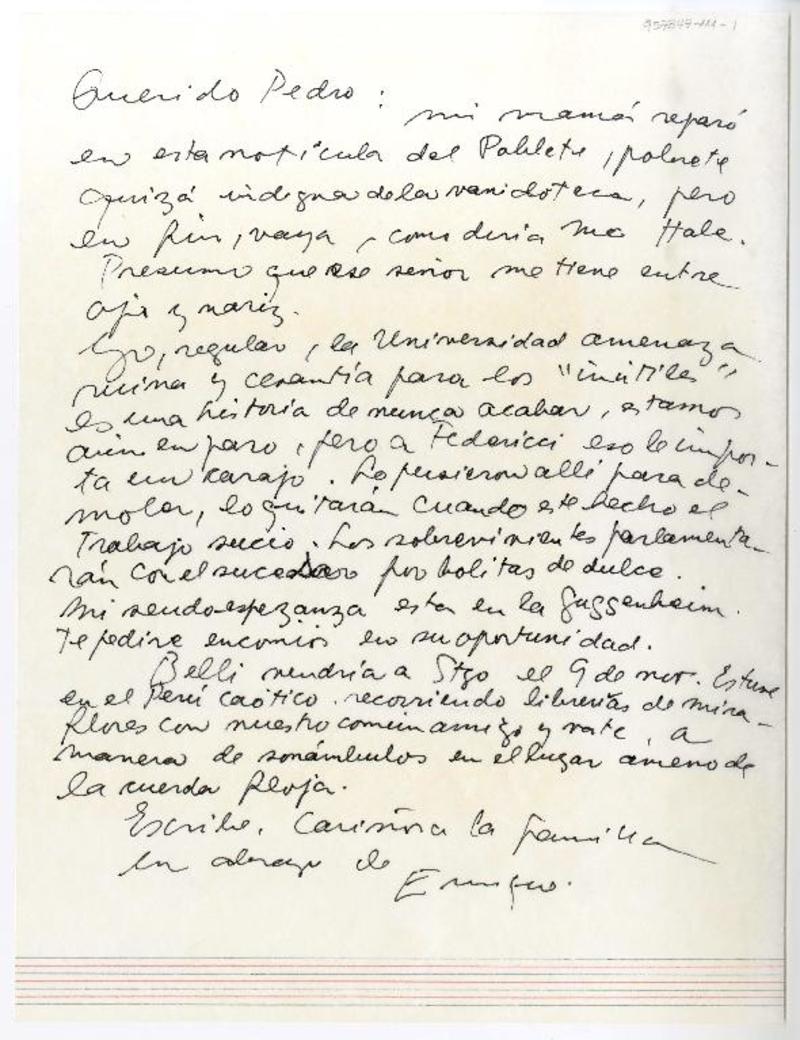 957847-AA-1
Querido Pedro:
mi mamá reparó
en esta notícula del Poblete, pobrete
quizá indigna de la vanidoteca, pero
en fin, vaya, como diría Mc Hale.
Presumo que ese señor me tiene entre
ojo y nariz.
Yo, regular, la Universidad amenaza
ruina y cesantía para los "inútiles"
es una historia de nunca acabar, estamos
aún en paro, pero a Federicci eso le impor-
ta un carajo. Lo pusieron allí para de-
moler, lo quitarán cuando esté hecho el
trabajo sucio. Los sobrevivientes parlamenta-
rán con el sucesor por bolitas de dulce.
Mi seudoesperanza está en la Guggenheim.
Te pediré encomios en su oportunidad.
Belli vendría a Stgo el 9 de nov. Estuve
en el Perú caótico. recorriendo librerías de Mira-
flores con nuestro común amigo y vate, a
manera de sonámbulos en el lugar ameno de
la cuerda floja.
Escribe. Cariños a la familia
un abrazo de
Enrique.